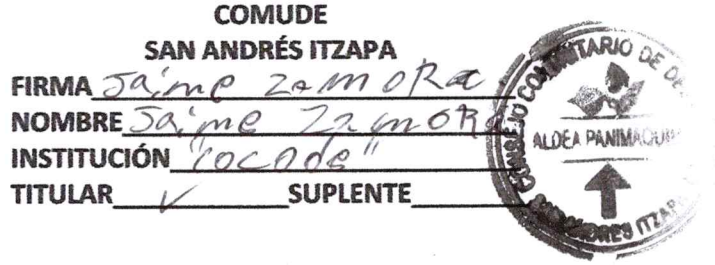 COMUDE
SAN ANDRÉS ITZAPA
FIRMA Jaime Zamora
NOMBRE Jaime Zamora
INSTITUCIÓN "cocode"
TITULAR ✓ SUPLENTE
CONSEJO COMUNITARIO DE DE
ALDEA PANIMAQUI
SAN ANDRES ITZAPA